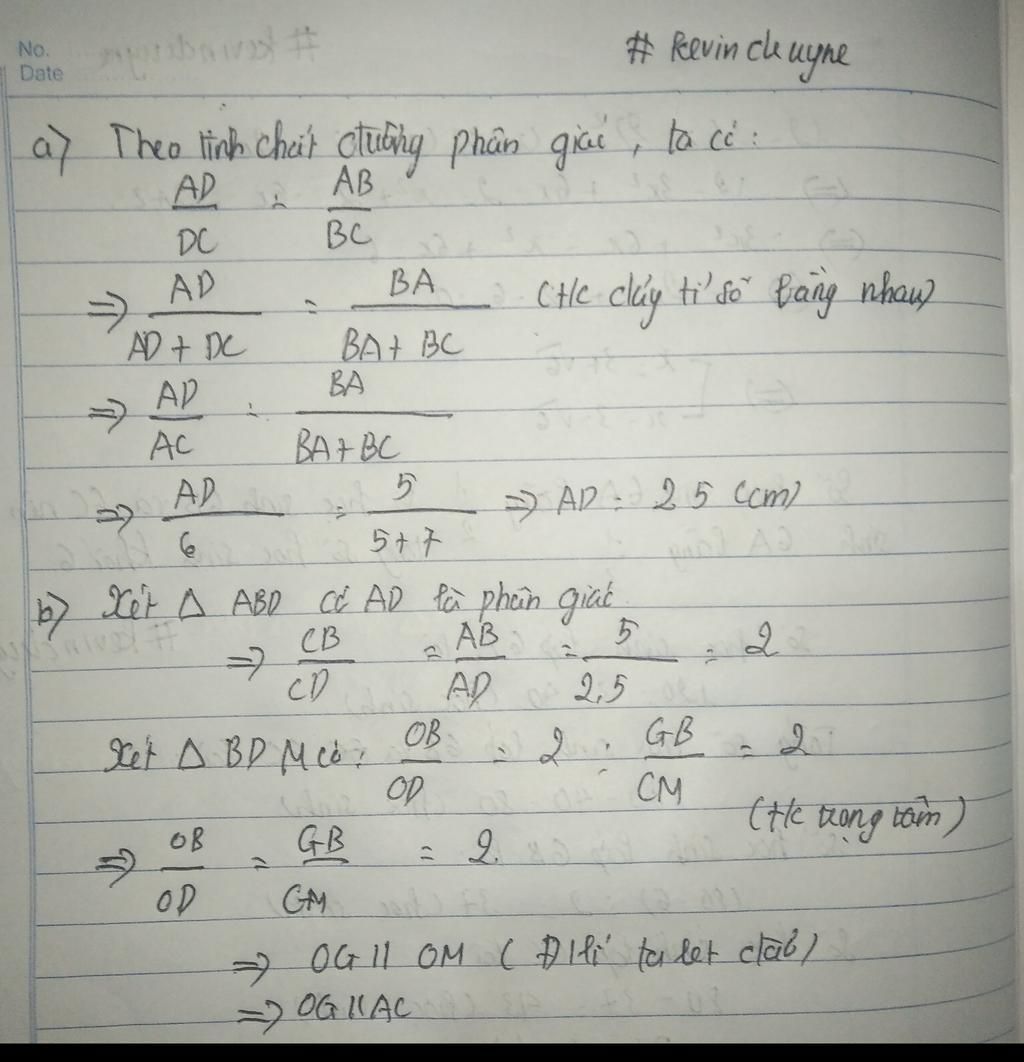 No.
Date
# Kevin chuyne
a) Theo tính chất đường phân giác, ta có:
AD/DC = AB/BC
=> AD/(AD + DC) = BA/(BA + BC) (t/c dãy tỉ số bằng nhau)
=> AD/AC = BA/(BA + BC)
=> AD/6 = 5/(5+7) => AD = 2 5 (cm)
b) Xét Δ ABD có AD là phân giác
=> CB/CD = AB/AD = 5/2,5 = 2
Xét Δ BDM có: OB/OD = 2 ; GB/CM = 2
(t/c trọng tâm)
=> OB/OD = GB/GM = 2.
=> OG || OM (Đ/lí ta let đảo)
=> OG || AC